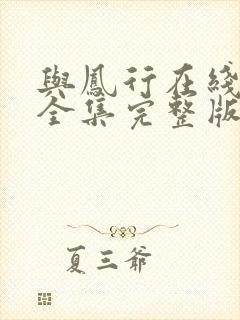 與鳳行在綫
全集完整版
夏三爺